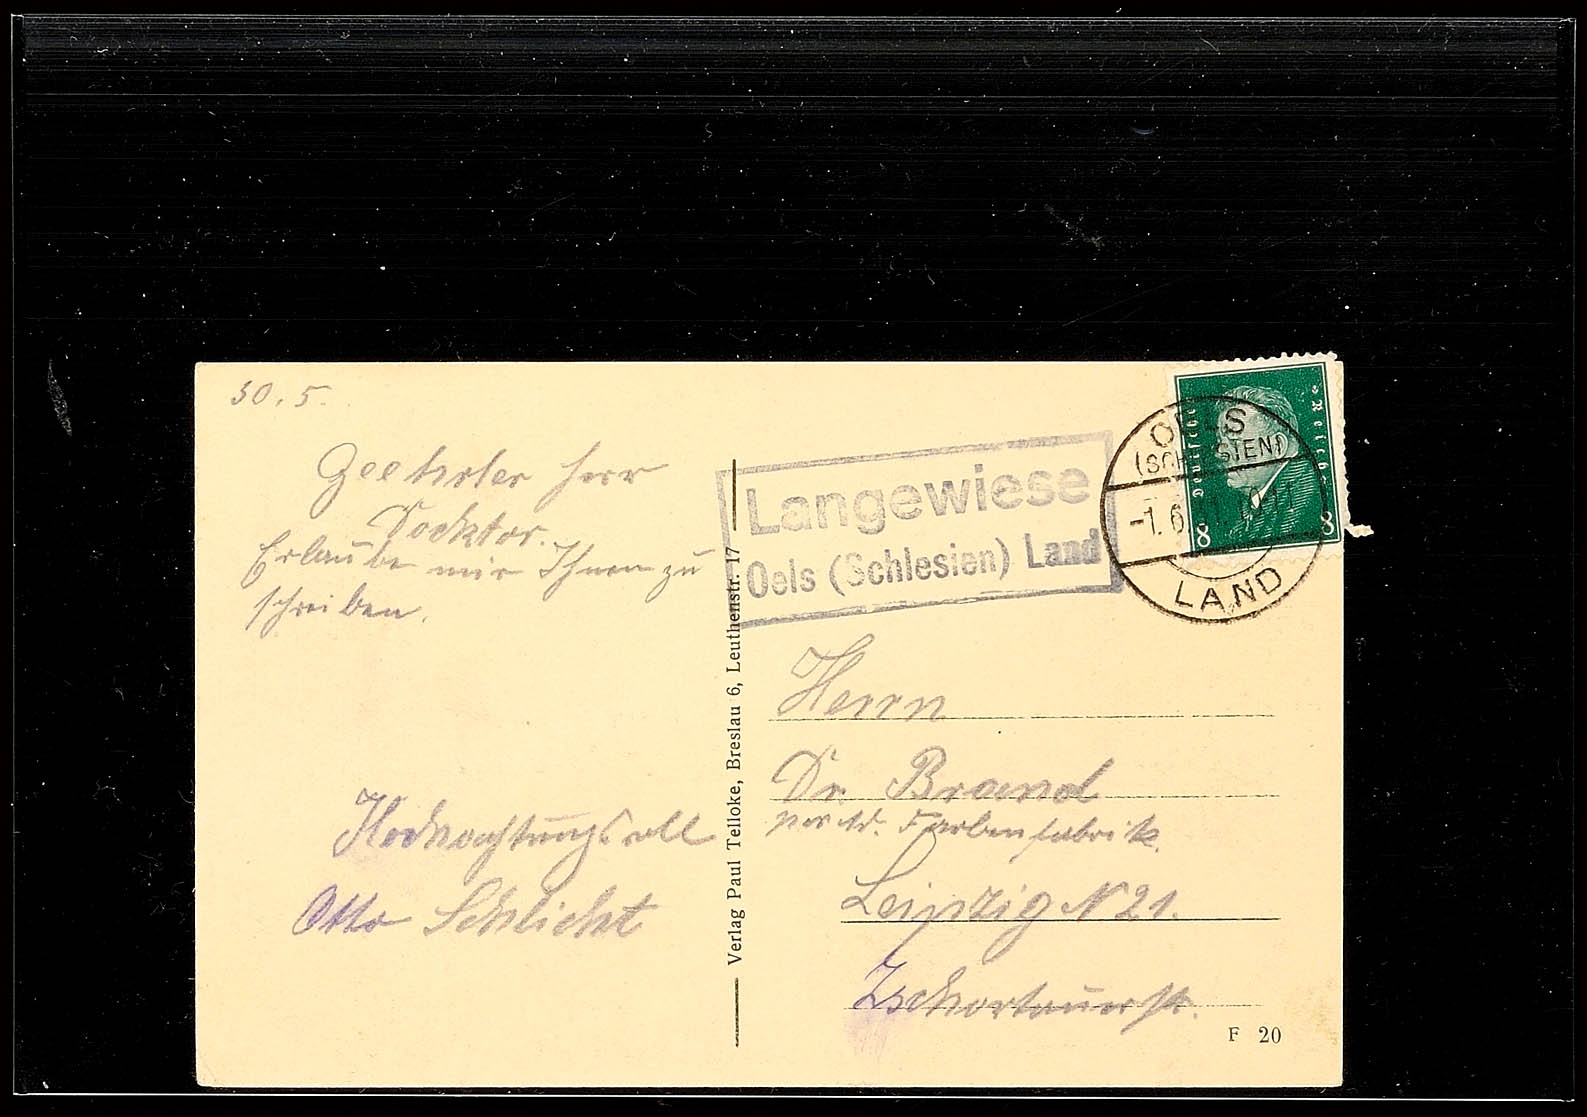 30. 5.
Geehrter Herr
Docktor.
Erlaube mir Ihnen zu
schreiben.
Hochachtungsvoll
Otto Schlicht
Verlag Paul Telloke, Breslau 6, Leuthenstr. 17
Langewiese
Oels (Schlesien) Land
Deutsches Reich
8 8
OELS
(SCHLESIEN)
-1. 6
LAND
Herrn
Dr. Brand
Farbenfabrik
Leipzig N 21.
Zschortauerstr.
F 20